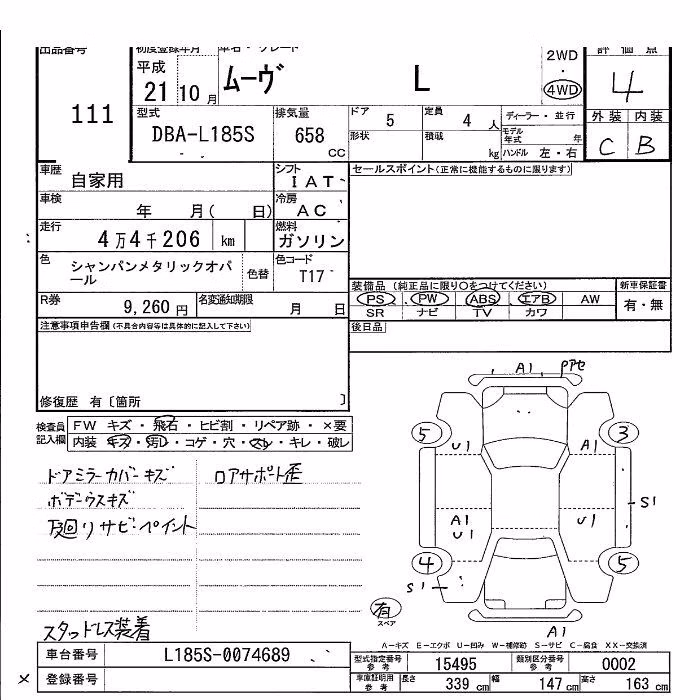 出品番号 初度登録年月 車名・グレード 評価点
111
平成
21 10 月
ムーヴ L
2WD
4WD
4
型式
DBA-L185S
排気量
658
CC
ドア 5 定員 4 人
形状 積載 kg
ディーラー・並行
モデル年式 年
ハンドル 左・右
外装 内装
C B
車歴 自家用
シフト IAT
セールスポイント(正常に機能するものに限ります)
車検 年 月( 日)
冷房 AC
走行 4万4千206 km
燃料 ガソリン
色 シャンパンメタリックオパール
色替
色コード T17
R券 9,260円
名変通知期限 月 日
装備品 (純正品に限り○をつけてください)
PS PW ABS エアB AW
SR ナビ TV カワ
新車保証書
有・無
後日品
注意事項申告欄(不具合内容等は具体的に記入して下さい)
修復歴 有〔箇所 〕
検査員記入欄
FW キズ・飛石・ヒビ割・リペア跡・×要
内装 キズ・汚レ・コゲ・穴・スレ・キレ・破レ
ドアミラーカバーキズ
ロアサポート歪
ボデーウスキズ
下廻りサビ・ペイント
スタッドレス装着
A1 Pアセ
5 U1 A1 3
S1
A1 U1 U1
4 5
S1
有
スペア
A1
A-キズ E-エクボ U-凹み W-補修跡 S-サビ C-腐食 XX-交換済
車台番号 L185S-0074689
登録番号
×
型式指定番号 参考 15495 類別区分番号 参考 0002
車庫証明用 参考 長さ 339 cm 幅 147 cm 高さ 163 cm